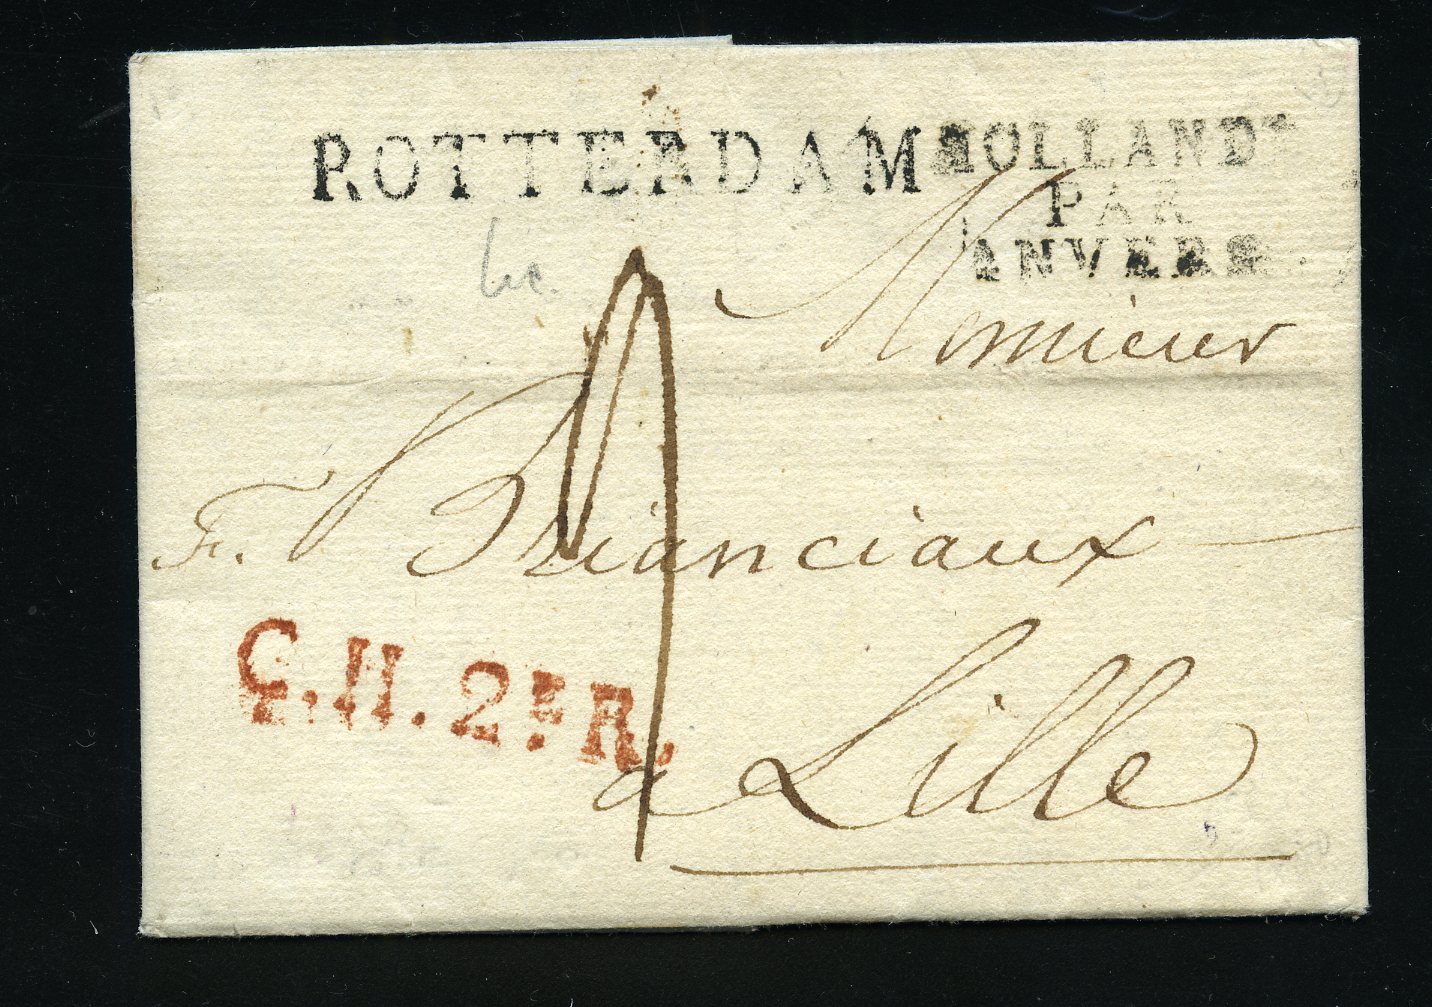 ROTTERDAM
HOLLANDE
PAR
ANVERS
Monsieur
F. Brianciaux
C.H.2E R.
a Lille